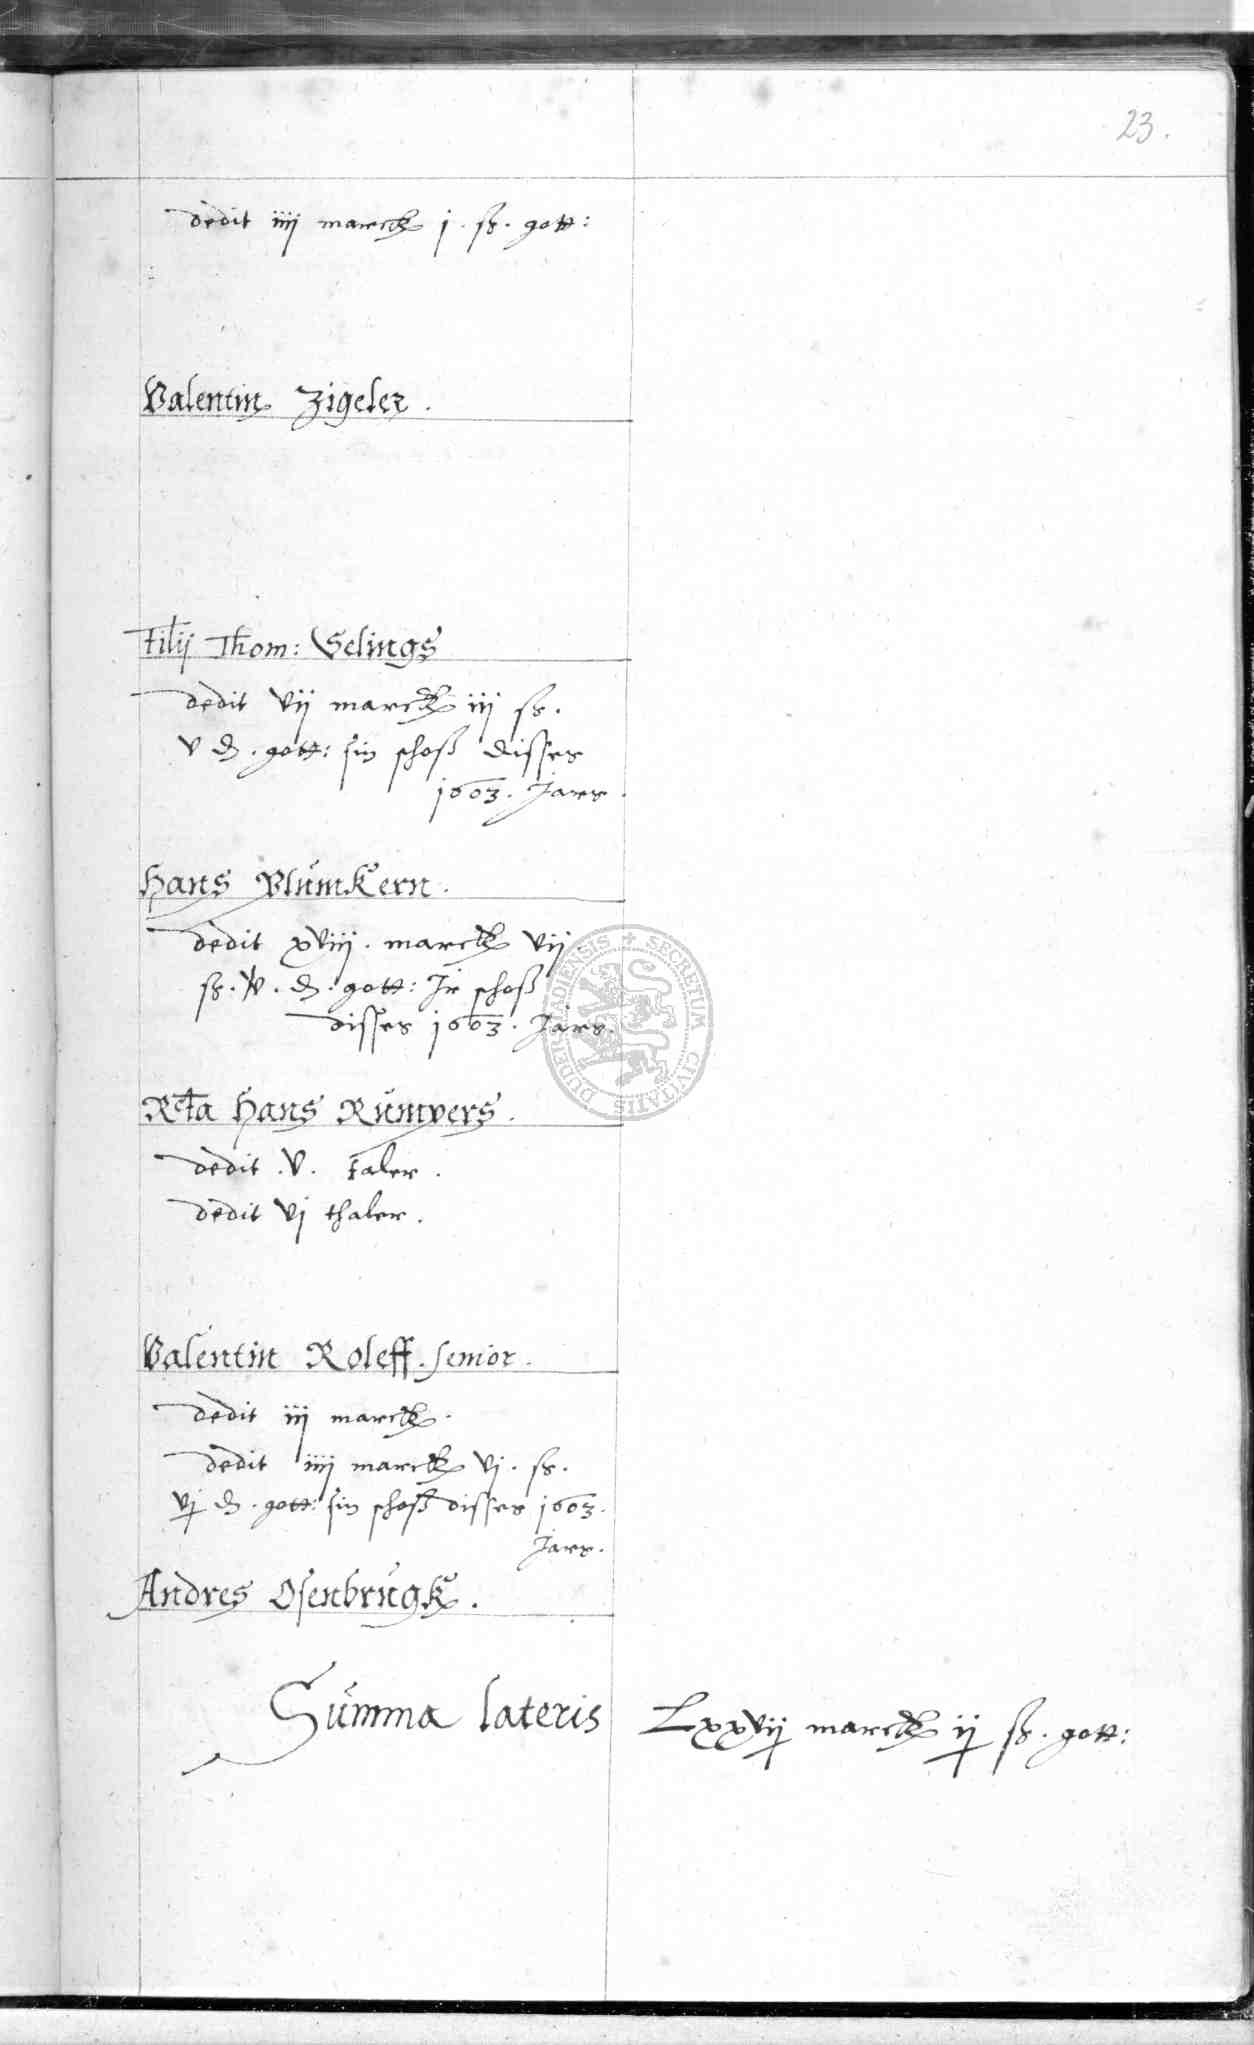 23.
dedit iiij marck j. ß. gott:
Valentin Zigeler.
Filij Thom: Selings
dedit vij marck iij ß.
v ₰. gott: sin schoß disses
1603. Jars.
Hans Blumkern.
dedit xviij. marck vij
ß. v. ₰. gott: Jr schoß
disses 1603. Jars.
Rcta Hans Rumpers.
dedit .v. taler.
dedit vj thaler.
Valentin Roleff. senior.
dedit iij marck.
dedit iiij marck vj. ß.
vj ₰. gott: sin schoß disses 1603.
Jars.
Andres Osenbrugk.
Summa lateris Lxxvij marck ij ß. gott:
SECRETUM CIVITATIS DUDERSTADIENSIS